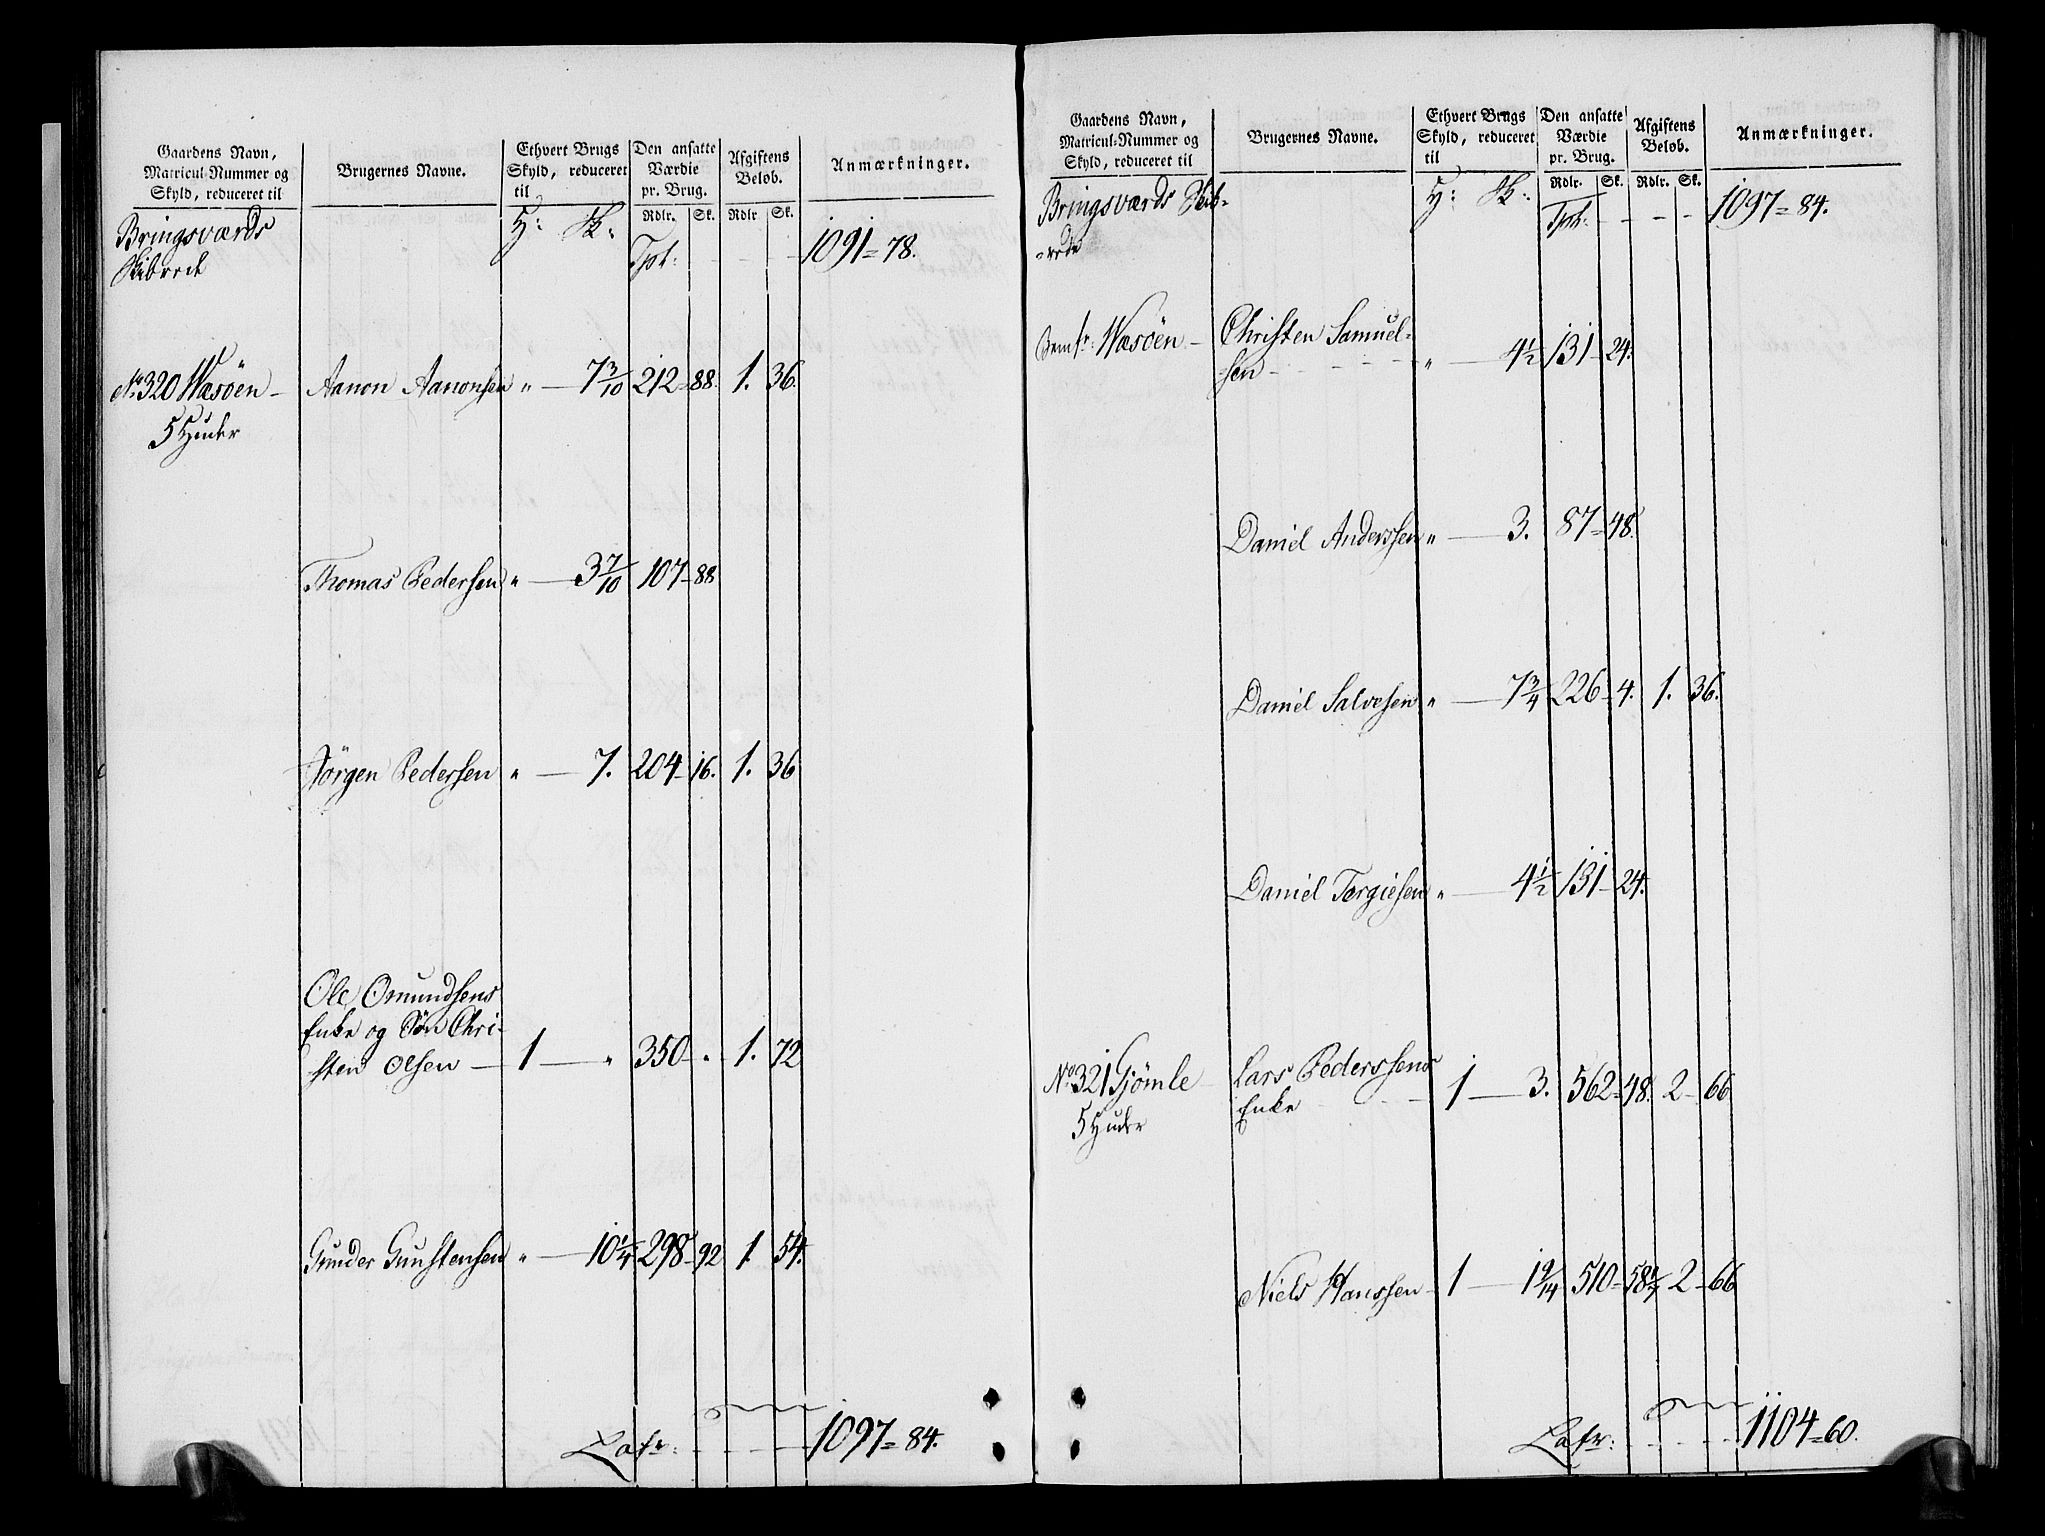 Gaardens Navn, Matricul-Nummer og Skyld, reduceret til | Brugernes Navne. | Ethvert Brugs Skyld, reduceret til | Den ansatte Værdie pr. Brug. | Afgiftens Beløb. | Anmærkninger.
H: Sk: | Rdlr. | Sk. | Rdlr | Sk.
Bringsværds
Skibrede
Tpt: - - - 1091 = 78.
No 320 Wasöen - Aanon Aanonsen " - 7 3/10 212 = 88. 1. 36.
5 Huder
Thomas Pedersen " - 3 7/10 107 - 88
Jörgen Pedersen " - 7. 204 - 16. 1. 36
Ole Omundsens
Enke og Søn Chri-
sten Olsen - 1 - " 350 - " 1. 72
Gunder Gunstensen " - 10 1/4 298 - 92 1 54.
Lafr: - - - - 1097 = 84.
Gaardens Navn, Matricul-Nummer og Skyld, reduceret til | Brugernes Navne. | Ethvert Brugs Skyld, reduceret til | Den ansatte Værdie pr. Brug. | Afgiftens Beløb. | Anmærkninger.
H: Sk: | Rdlr. | Sk. | Rdlr. | Sk.
Bringsværds Skib-
-rede
Tpt: - - - - 1097 = 84.
Wasöen - Christen Samuel-
sen - - - " - 4 1/2 131 - 24.
Daniel Anderssen " - 3. 87 = 48.
Daniel Salvesen " - 7 3/4 226 - 4. 1. 36.
Daniel Tergiesen " - 4 1/2 131 - 24.
No 321 Gjömle - Lars Pederssens
Enke - - - 1 - 3. 562 = 48. 2 - 66
5 Huder
Niels Hanssen - 1 - 1 9/14 510 - 58 2/7 2 - 66
Lafr: - - - - 1104 = 60.